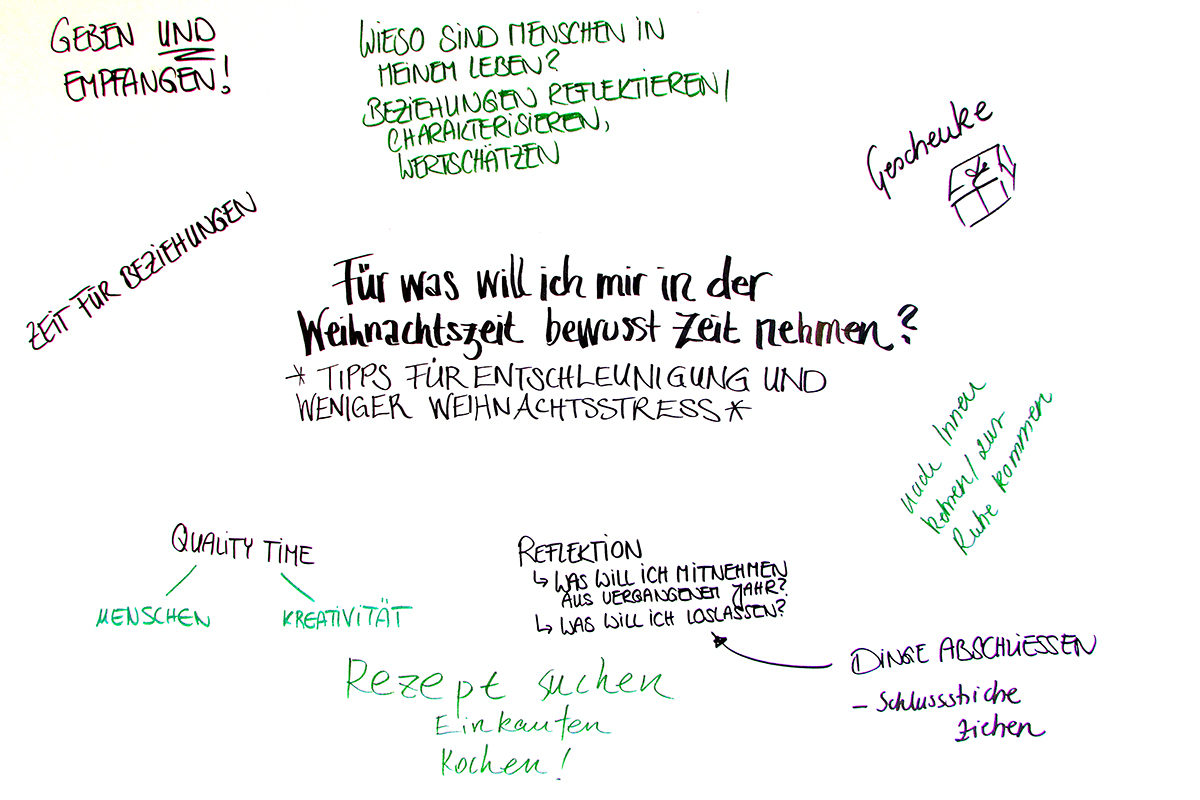 GEBEN UND
EMPFANGEN!
WIESO SIND MENSCHEN IN
MEINEM LEBEN?
BEZIEHUNGEN REFLEKTIEREN/
CHARAKTERISIEREN,
WERTSCHÄTZEN
Geschenke
ZEIT FÜR BEZIEHUNGEN
Für was will ich mir in der
Weihnachtszeit bewusst Zeit nehmen?
* TIPPS FÜR ENTSCHLEUNIGUNG UND
WENIGER WEIHNACHTSSTRESS *
nach Innen
kehren/zur
Ruhe kommen
QUALITY TIME
MENSCHEN
KREATIVITÄT
REFLEKTION
↳ WAS WILL ICH MITNEHMEN
AUS VERGANGENEM JAHR?
↳ WAS WILL ICH LOSLASSEN?
DINGE ABSCHLIESSEN
– Schlussstriche
ziehen
Rezept suchen
Einkaufen
Kochen!